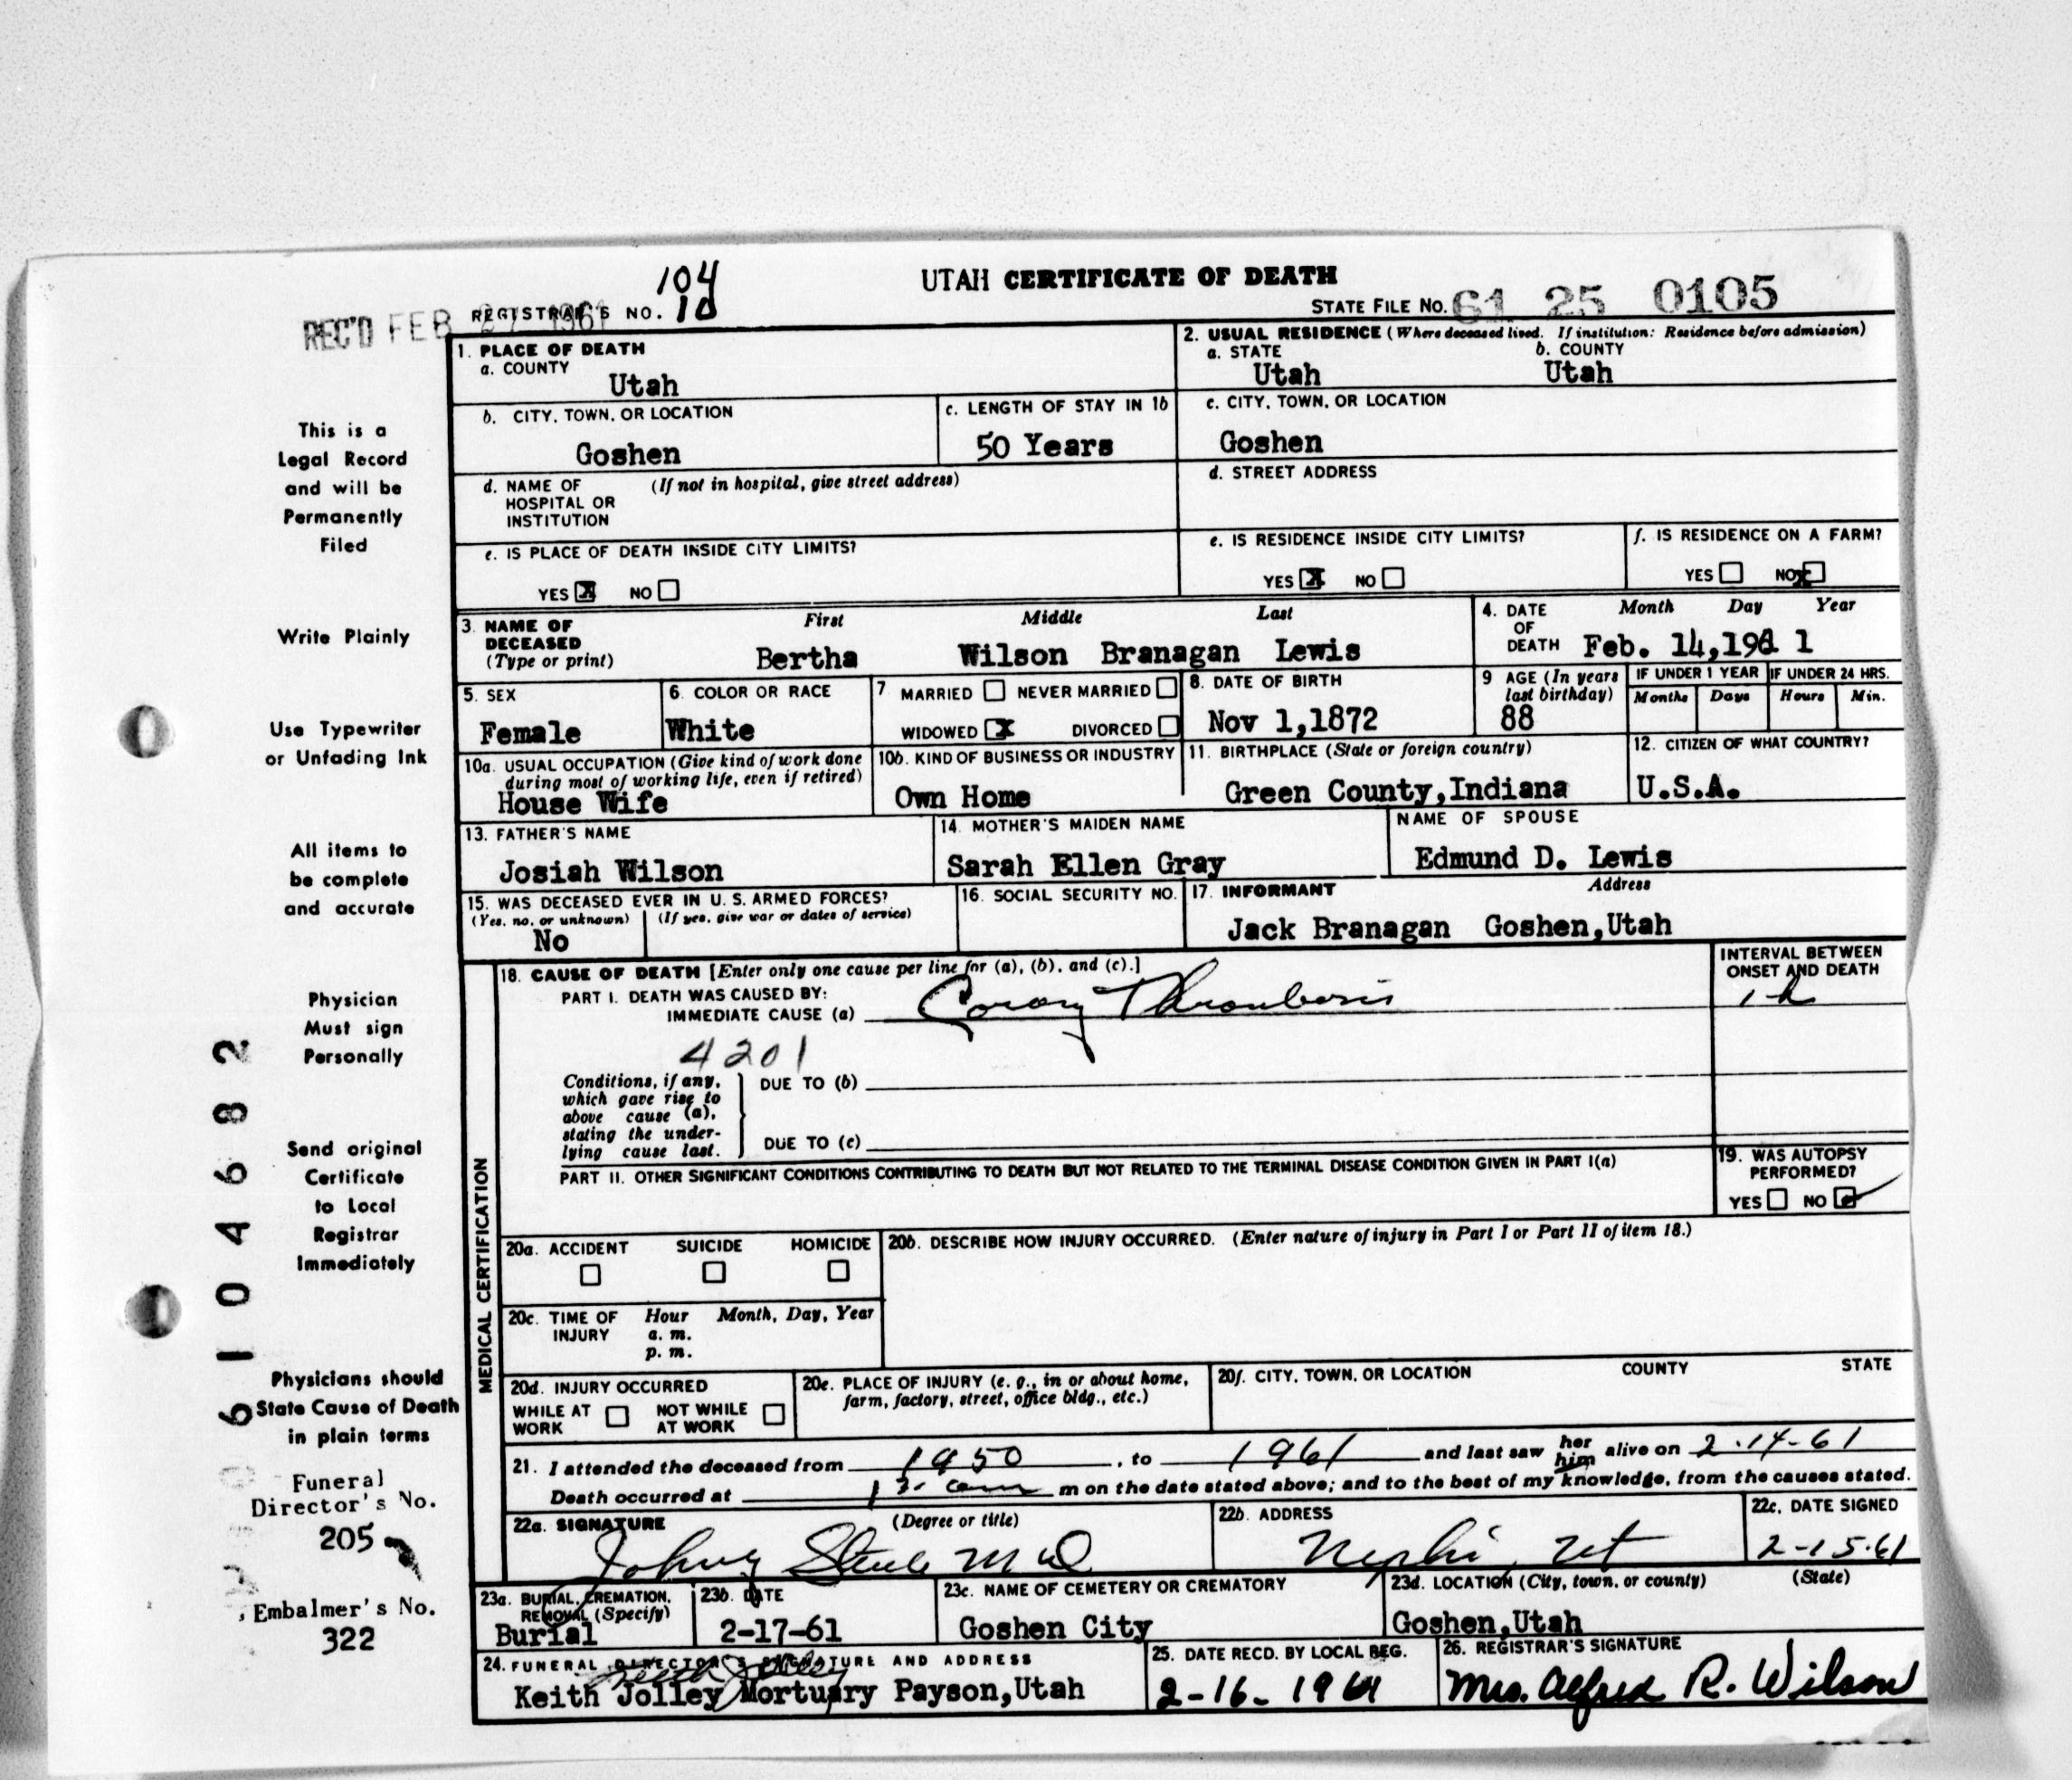 104
UTAH CERTIFICATE OF DEATH
REC'D FEB 27 1961
REGISTRAR'S NO. 10
STATE FILE NO. 61 25 0105
1. PLACE OF DEATH
a. COUNTY
Utah
2. USUAL RESIDENCE (Where deceased lived. If institution: Residence before admission)
a. STATE b. COUNTY
Utah Utah
b. CITY, TOWN, OR LOCATION
Goshen
c. LENGTH OF STAY IN 1b
50 Years
c. CITY, TOWN, OR LOCATION
Goshen
d. NAME OF HOSPITAL OR INSTITUTION (If not in hospital, give street address)
d. STREET ADDRESS
e. IS PLACE OF DEATH INSIDE CITY LIMITS?
YES X NO
e. IS RESIDENCE INSIDE CITY LIMITS?
YES X NO
f. IS RESIDENCE ON A FARM?
YES NO X
3. NAME OF DECEASED (Type or print)
First Middle Last
Bertha Wilson Branagan Lewis
4. DATE OF DEATH
Month Day Year
Feb. 14,1961
5. SEX
Female
6. COLOR OR RACE
White
7 MARRIED NEVER MARRIED
WIDOWED X DIVORCED
8. DATE OF BIRTH
Nov 1,1872
9 AGE (In years last birthday)
88
IF UNDER 1 YEAR IF UNDER 24 HRS.
Months Days Hours Min.
10a. USUAL OCCUPATION (Give kind of work done during most of working life, even if retired)
House Wife
10b. KIND OF BUSINESS OR INDUSTRY
Own Home
11. BIRTHPLACE (State or foreign country)
Green County,Indiana
12. CITIZEN OF WHAT COUNTRY?
U.S.A.
13. FATHER'S NAME
Josiah Wilson
14. MOTHER'S MAIDEN NAME
Sarah Ellen Gray
NAME OF SPOUSE
Edmund D. Lewis
15. WAS DECEASED EVER IN U. S. ARMED FORCES?
(Yes, no, or unknown) (If yes, give war or dates of service)
No
16. SOCIAL SECURITY NO.
17. INFORMANT Address
Jack Branagan Goshen,Utah
MEDICAL CERTIFICATION
18. CAUSE OF DEATH [Enter only one cause per line for (a), (b), and (c).]
PART I. DEATH WAS CAUSED BY:
IMMEDIATE CAUSE (a) Corory Thrombosis
INTERVAL BETWEEN ONSET AND DEATH
1 h
4201
Conditions, if any, which gave rise to above cause (a), stating the underlying cause last.
DUE TO (b)
DUE TO (c)
PART II. OTHER SIGNIFICANT CONDITIONS CONTRIBUTING TO DEATH BUT NOT RELATED TO THE TERMINAL DISEASE CONDITION GIVEN IN PART I(a)
19. WAS AUTOPSY PERFORMED?
YES NO
20a. ACCIDENT SUICIDE HOMICIDE
20b. DESCRIBE HOW INJURY OCCURRED. (Enter nature of injury in Part I or Part II of item 18.)
20c. TIME OF INJURY Hour Month, Day, Year
a. m.
p. m.
20d. INJURY OCCURRED
WHILE AT WORK NOT WHILE AT WORK
20e. PLACE OF INJURY (e. g., in or about home, farm, factory, street, office bldg., etc.)
20f. CITY, TOWN, OR LOCATION COUNTY STATE
21. I attended the deceased from 1950, to 1961 and last saw her him alive on 2-14-61
Death occurred at m on the date stated above; and to the best of my knowledge, from the causes stated.
22a. SIGNATURE (Degree or title)
Steele M D
22b. ADDRESS
Nephi, Ut
22c. DATE SIGNED
2-15-61
23a. BURIAL, CREMATION, REMOVAL (Specify)
Burial
23b. DATE
2-17-61
23c. NAME OF CEMETERY OR CREMATORY
Goshen City
23d. LOCATION (City, town, or county) (State)
Goshen,Utah
24. FUNERAL DIRECTOR'S SIGNATURE AND ADDRESS
Keith Jolley
Keith Jolley Mortuary Payson,Utah
25. DATE RECD. BY LOCAL REG.
2-16-1961
26. REGISTRAR'S SIGNATURE
Mrs. Alfred R. Wilson
This is a
Legal Record
and will be
Permanently
Filed
Write Plainly
Use Typewriter
or Unfading Ink
All items to
be complete
and accurate
Physician
Must sign
Personally
Send original
Certificate
to Local
Registrar
Immediately
Physicians should
State Cause of Death
in plain terms
Funeral
Director's No.
205
Embalmer's No.
322
6104682